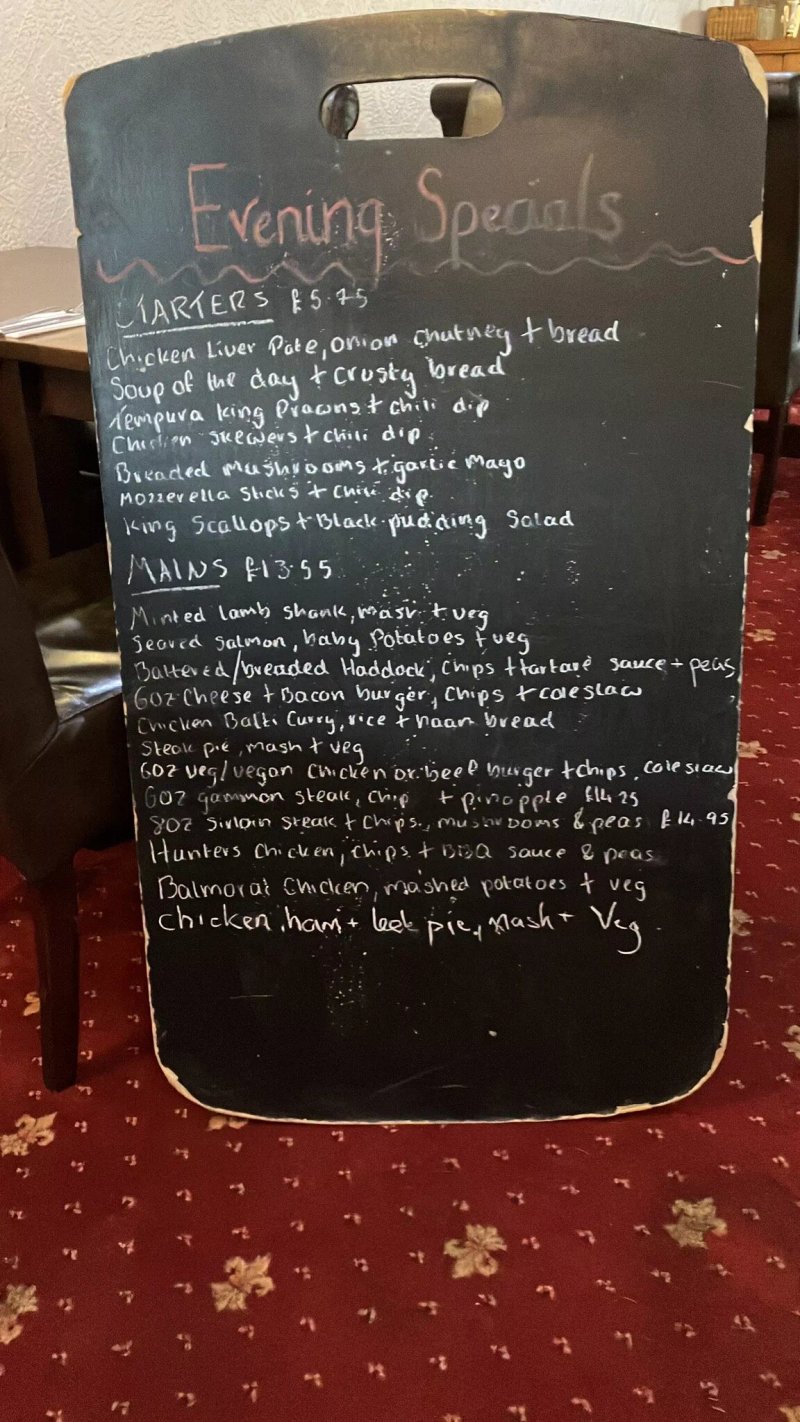 Evening Specials
STARTERS £5.75
Chicken Liver Pate, onion chutney + bread
Soup of the day + crusty bread
Tempura king Prawns + chili dip
Chicken skewers + chili dip
Breaded mushrooms + garlic Mayo
Mozzerella Sticks + Chili dip
King Scallops + Black pudding Salad
MAINS £13.55
Minted lamb shank, mash + veg
Seared Salmon, baby Potatoes + veg
Battered/breaded Haddock, Chips + tartare sauce + peas
6oz Cheese + Bacon burger, Chips + coleslaw
Chicken Balti Curry, rice + naan bread
Steak pie, mash + veg
6oz veg/vegan Chicken or beef burger + chips, coleslaw
6oz gammon steak, chip + pinapple £14.25
8oz Sirloin Steak + Chips, mushrooms & peas £14.95
Hunters Chicken, chips + BBQ sauce & peas
Balmoral Chicken, mashed potatoes + veg
Chicken, ham + leek pie, Mash + Veg